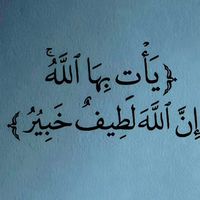 ﴿يَأْتِ بِهَا ٱللَّهُۚ
إِنَّ ٱللَّهَ لَطِيفٌ خَبِيرٌ﴾